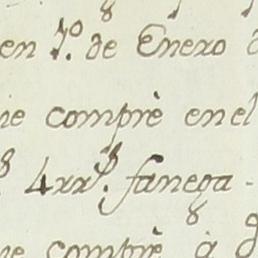 en 1.º de Enero
comprè en el
4 rr.s fanega
comprè à